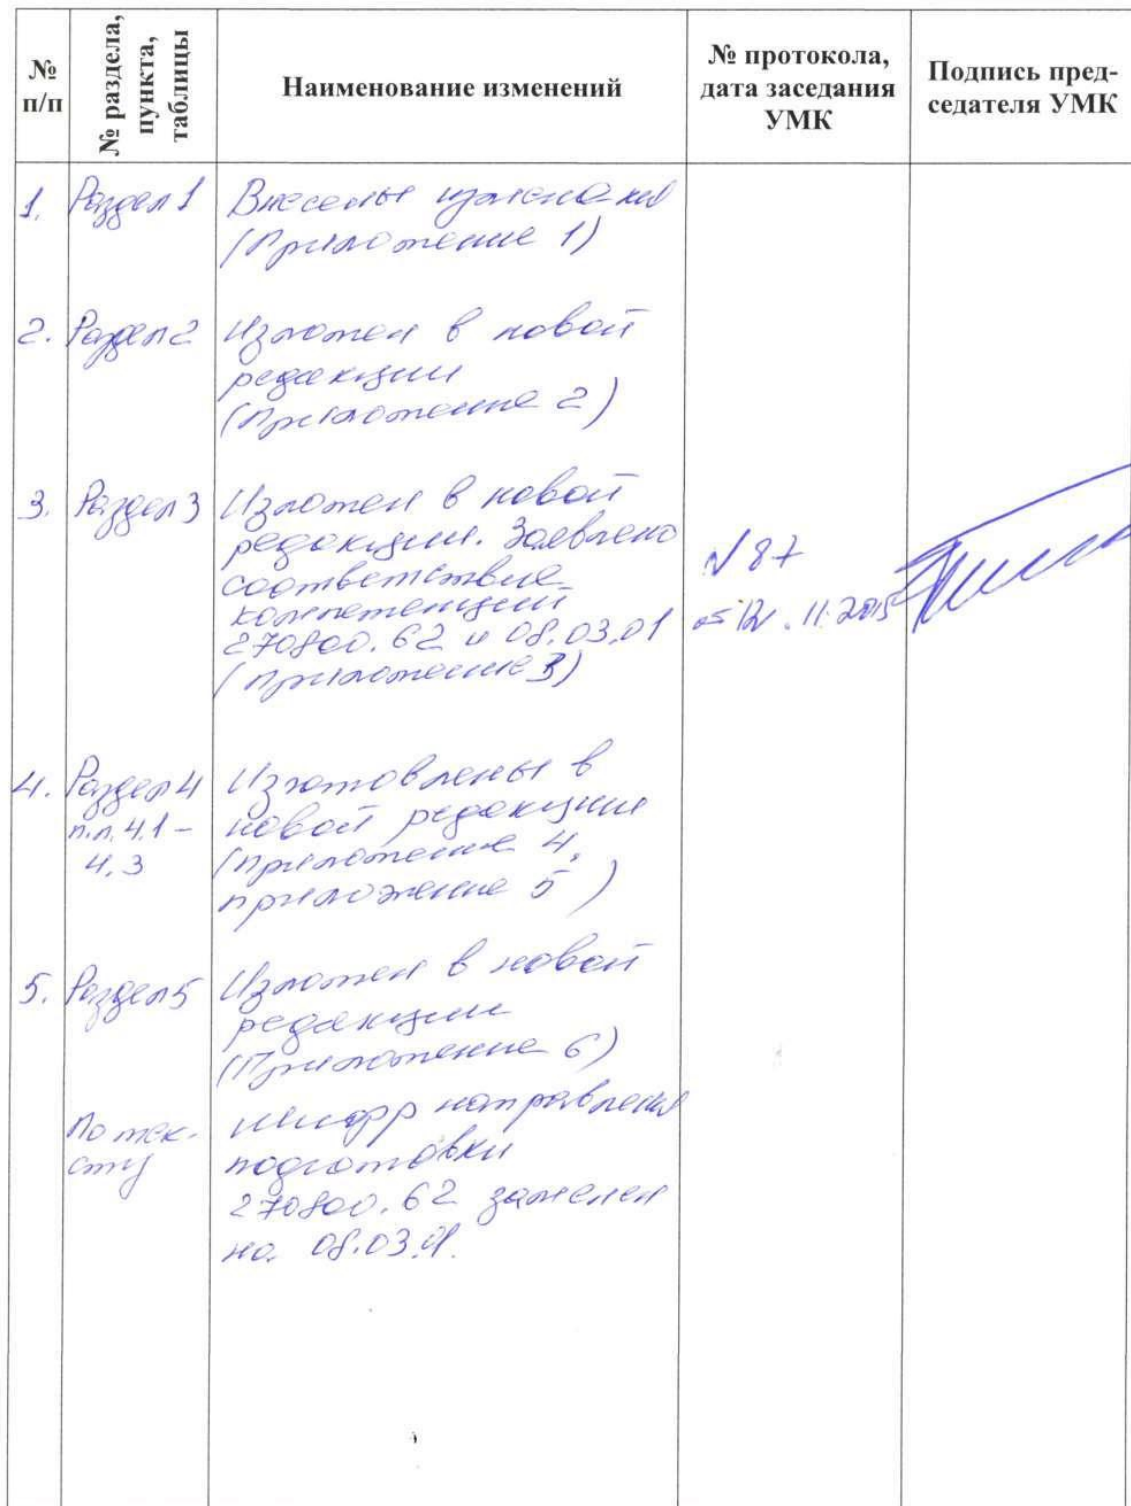 №
п/п
№ раздела,
пункта,
таблицы
Наименование изменений
№ протокола,
дата заседания
УМК
Подпись пред-
седателя УМК
1. Раздел 1 Внесены изменения
(Приложение 1)
2. Раздел 2 Изложен в новой
редакции
(Приложение 2)
3. Раздел 3 Изложен в новой
редакции. Заявлено
соответствие
компетенций
270800.62 и 08.03.01
(приложение 3)
№ 87
от 12.11.2015
4. Раздел 4 Изготовлены в
п.п. 4.1 – новой редакции
4.3 (приложение 4,
приложение 5)
5. Раздел 5 Изложен в новой
редакции
(Приложение 6)
По тек- шифр направления
сту подготовки
270800.62 заменен
на 08.03.01.